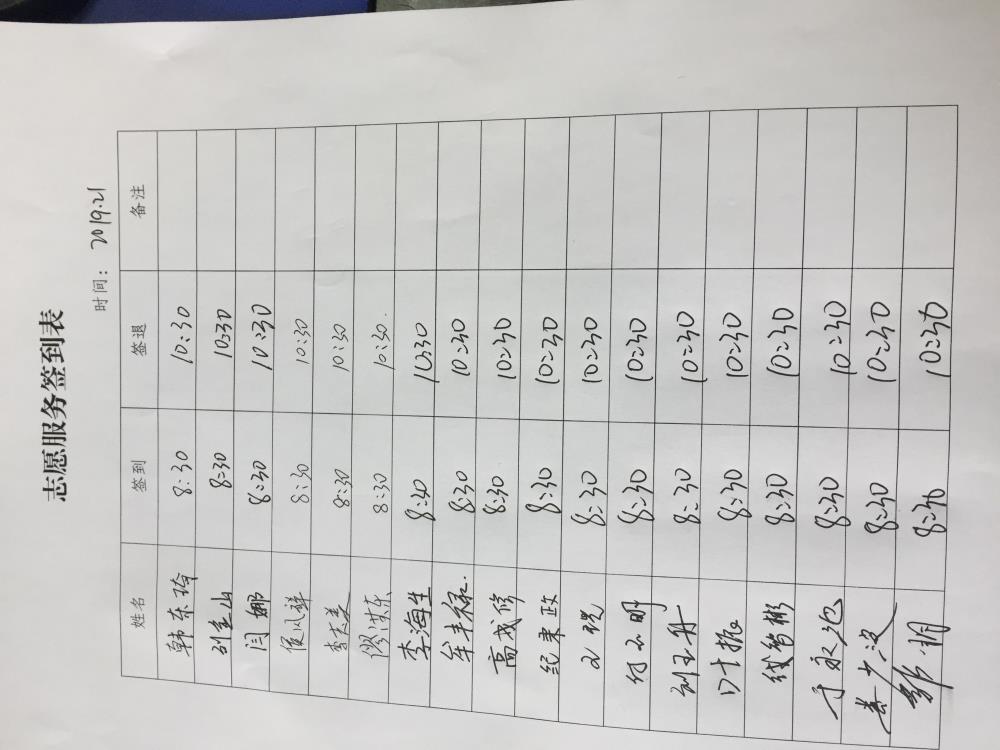 志愿服务签到表
时间: 2019.21
姓名 签到 签退 备注
韩东玲 8:30 10:30
刘奎山 8:30 10:30
闫娜 8:30 10:30
侯凤祥 8:30 10:30
8:30 10:30
8:30 10:30.
李海生 8:30 10:30
牟丰禄. 8:30 10:30
高成修 8:30 10:30
纪秉政 8:30 10:30
8:30 10:30
付立明 8:30 10:30
刘玉升 8:30 10:30
8:30 10:30
8:30 10:30
于永池 8:30 10:30
娄少波 8:30 10:30
8:30 10:30